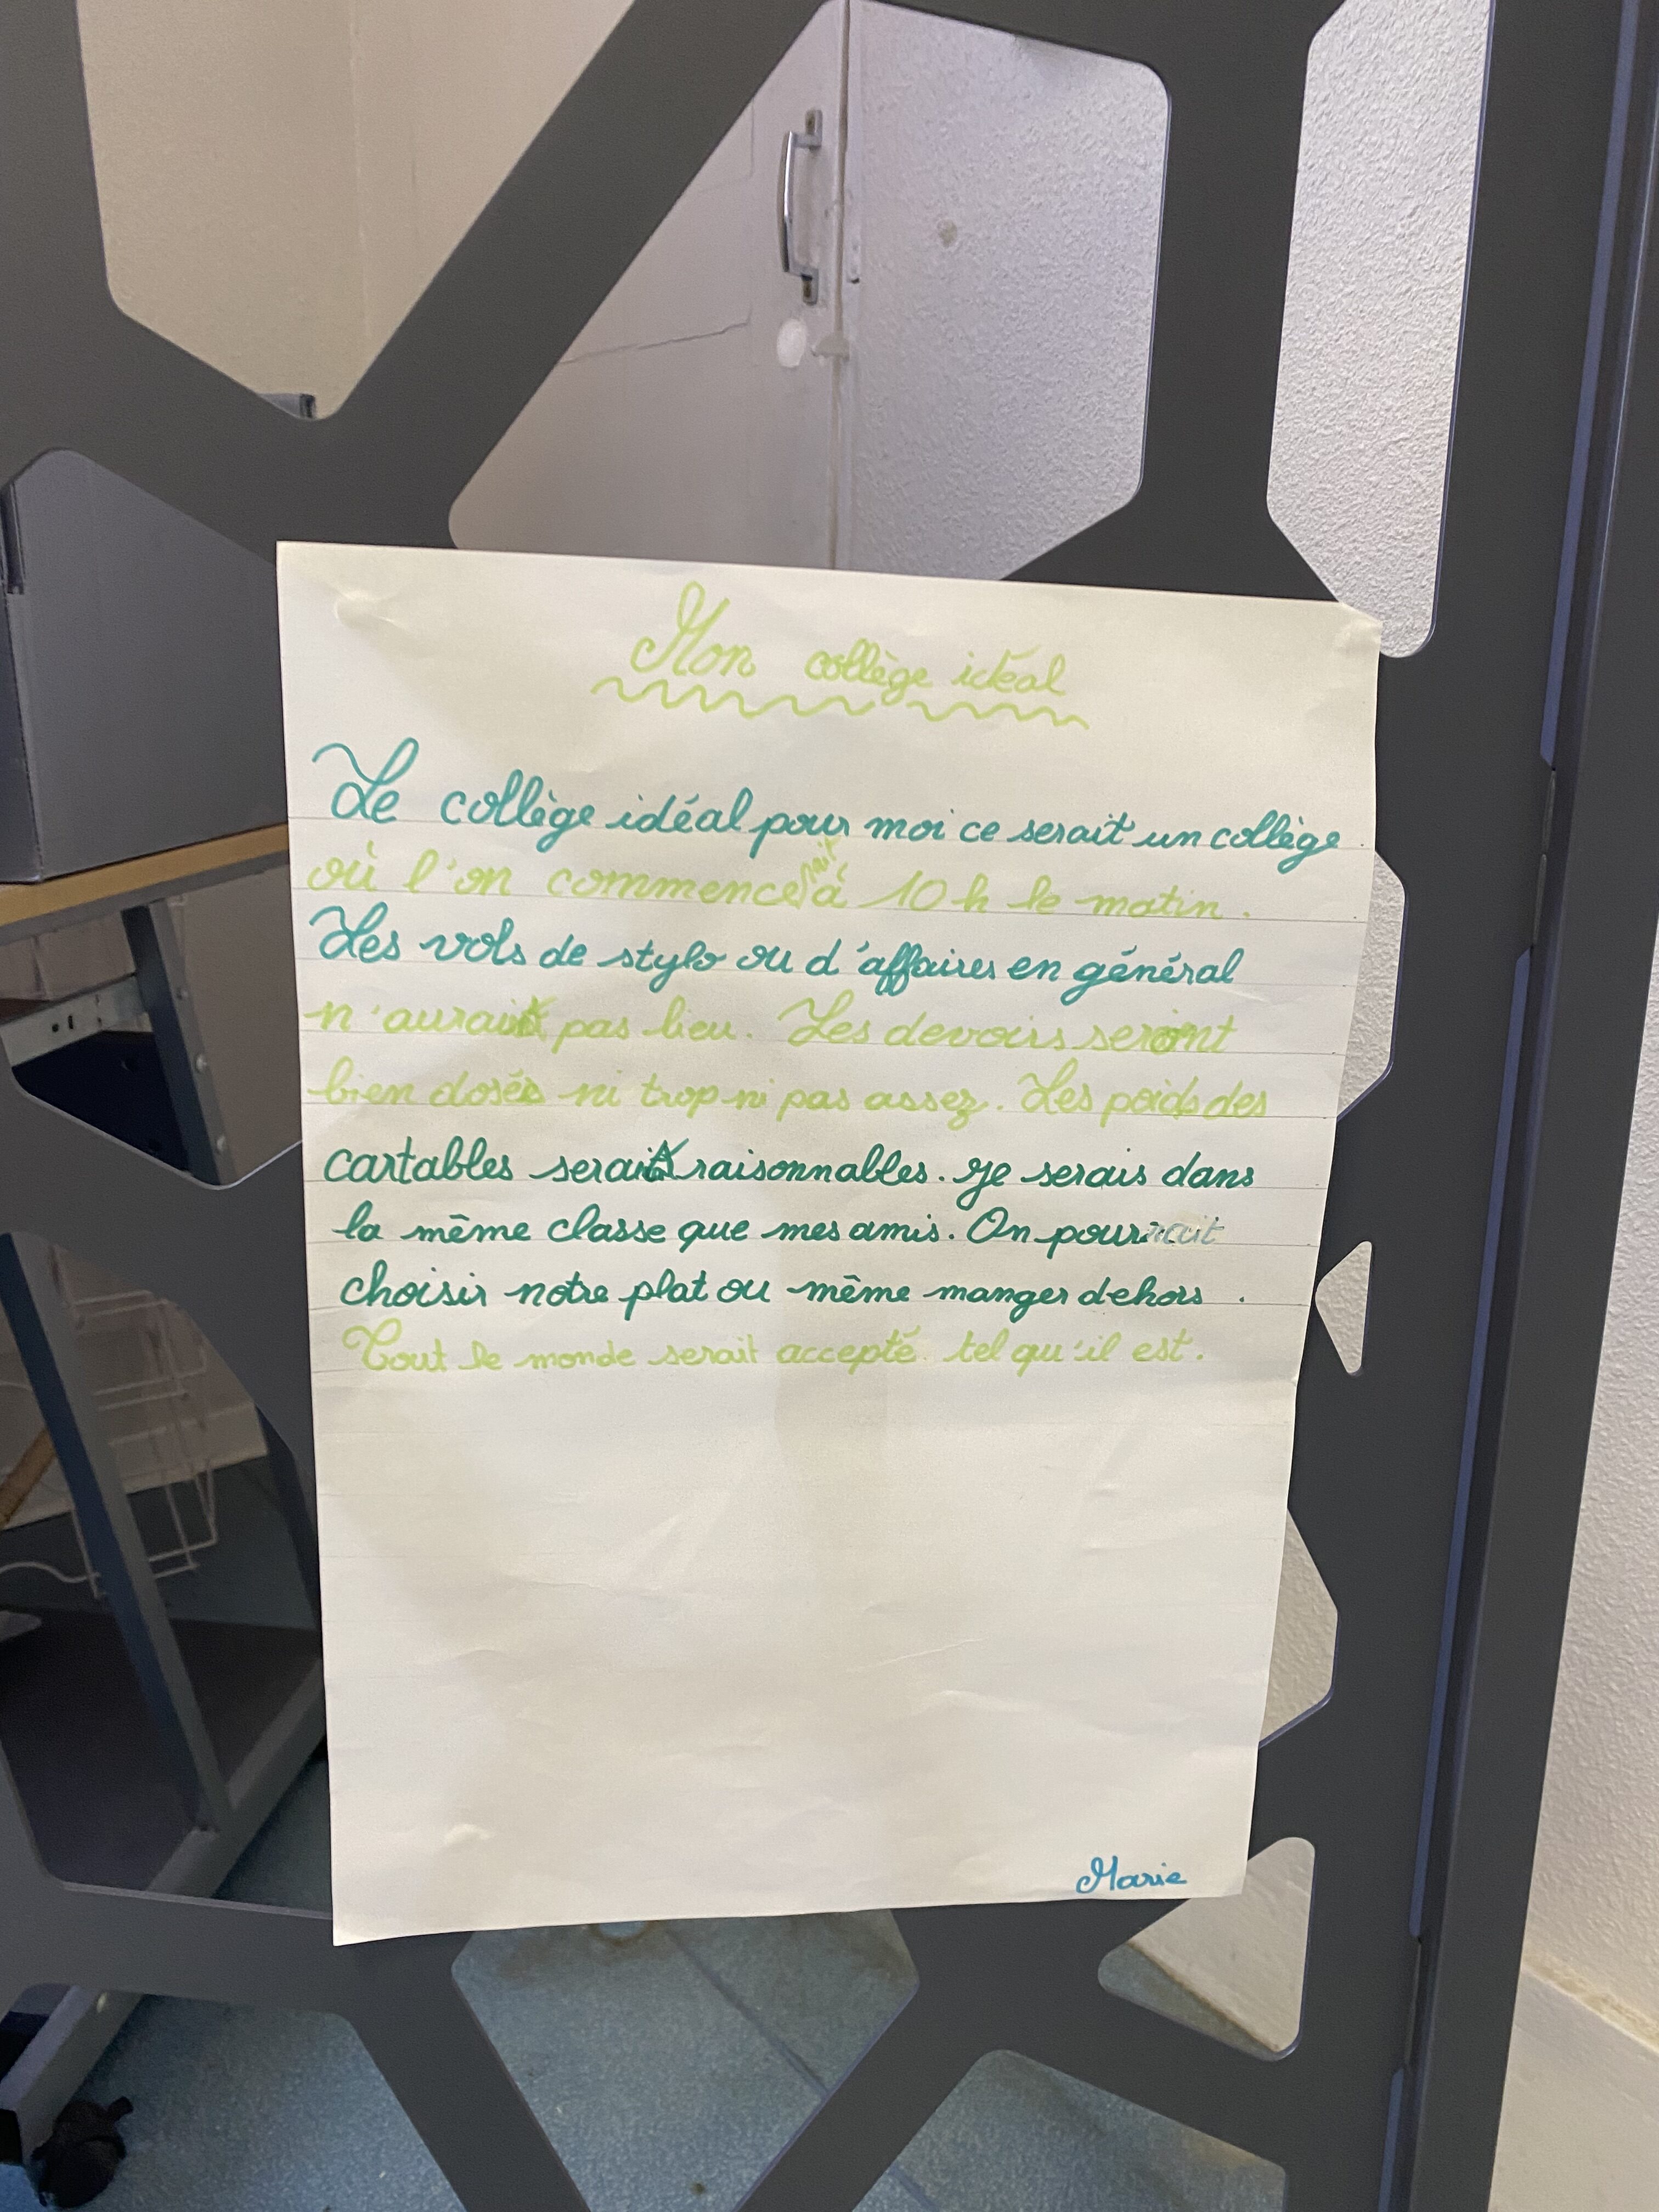 Mon collège idéal
Le collège idéal pour moi ce serait un collège
où l'on commencerait à 10 h le matin.
Les vols de stylo ou d'affaires en général
n'aurait pas lieu. Les devoirs seront
bien dosés ni trop ni pas assez. Les poids des
cartables serait raisonnables. Je serais dans
la même classe que mes amis. On pourrait
choisir notre plat ou même manger dehors.
Tout le monde serait accepté tel qu'il est.
Marie